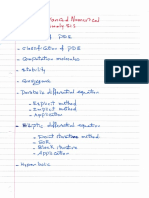 Advanced Numerical
812
of PDE
- Classification of PDE
- Computation molecules
- Stability
- Convergence
- Parabolic differential equation
- Explicit method
- Implicit method
- Application
- Elliptic differential equation
- Direct iterative method
- SOR
- Block iterative
- Application
- Hyperbolic